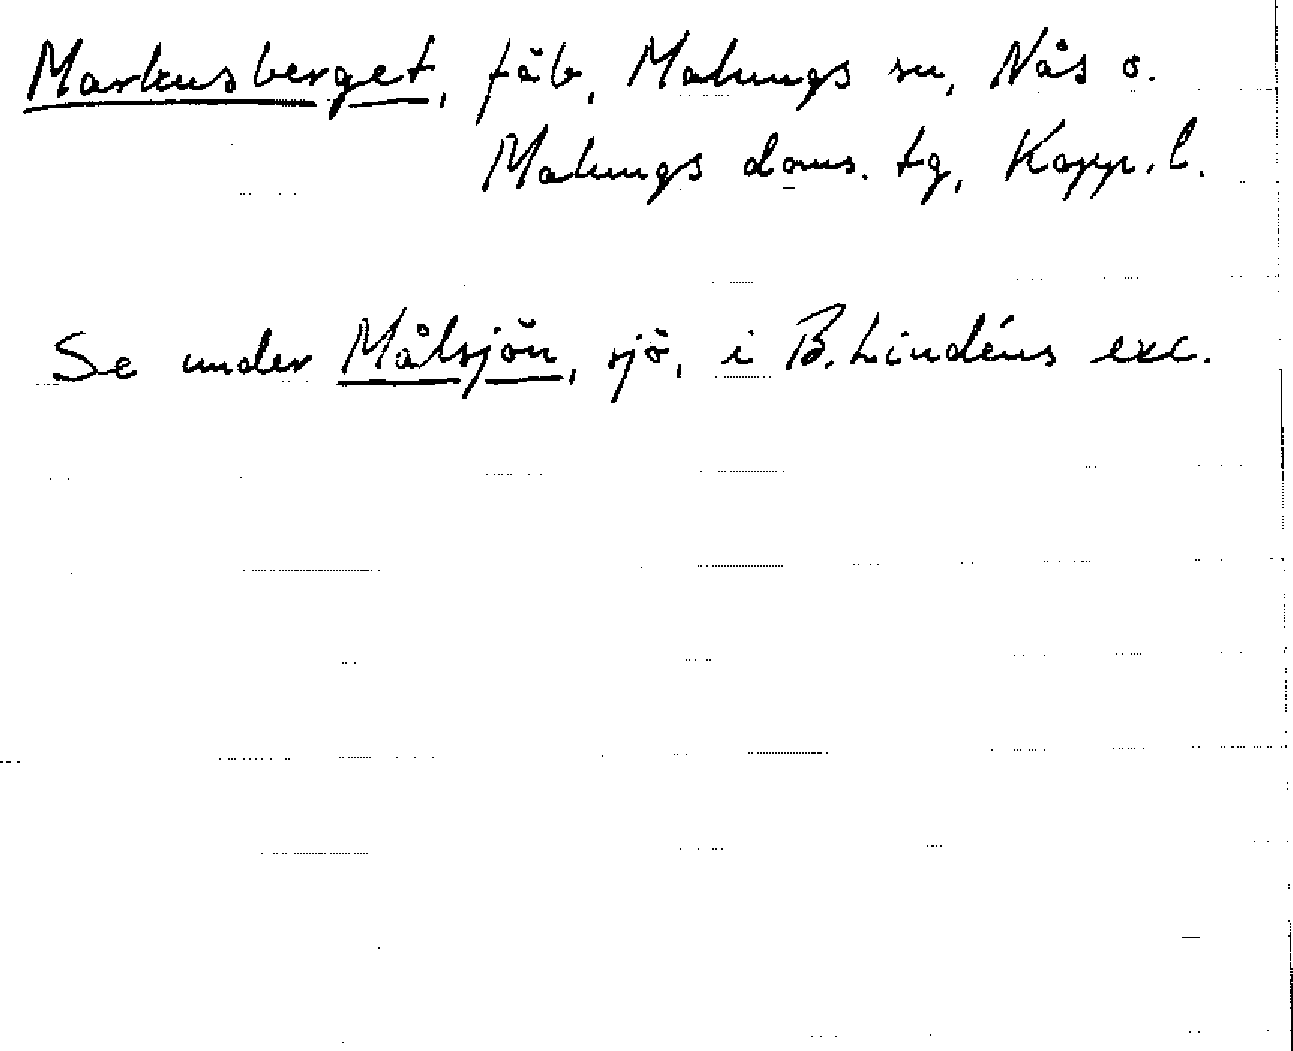 Markusberget, fäb, Malungs sn, Nås o.
Malungs doms. tg, Kopp. l.
Se under Målsjön, sjö, i B. Lindéns exc.